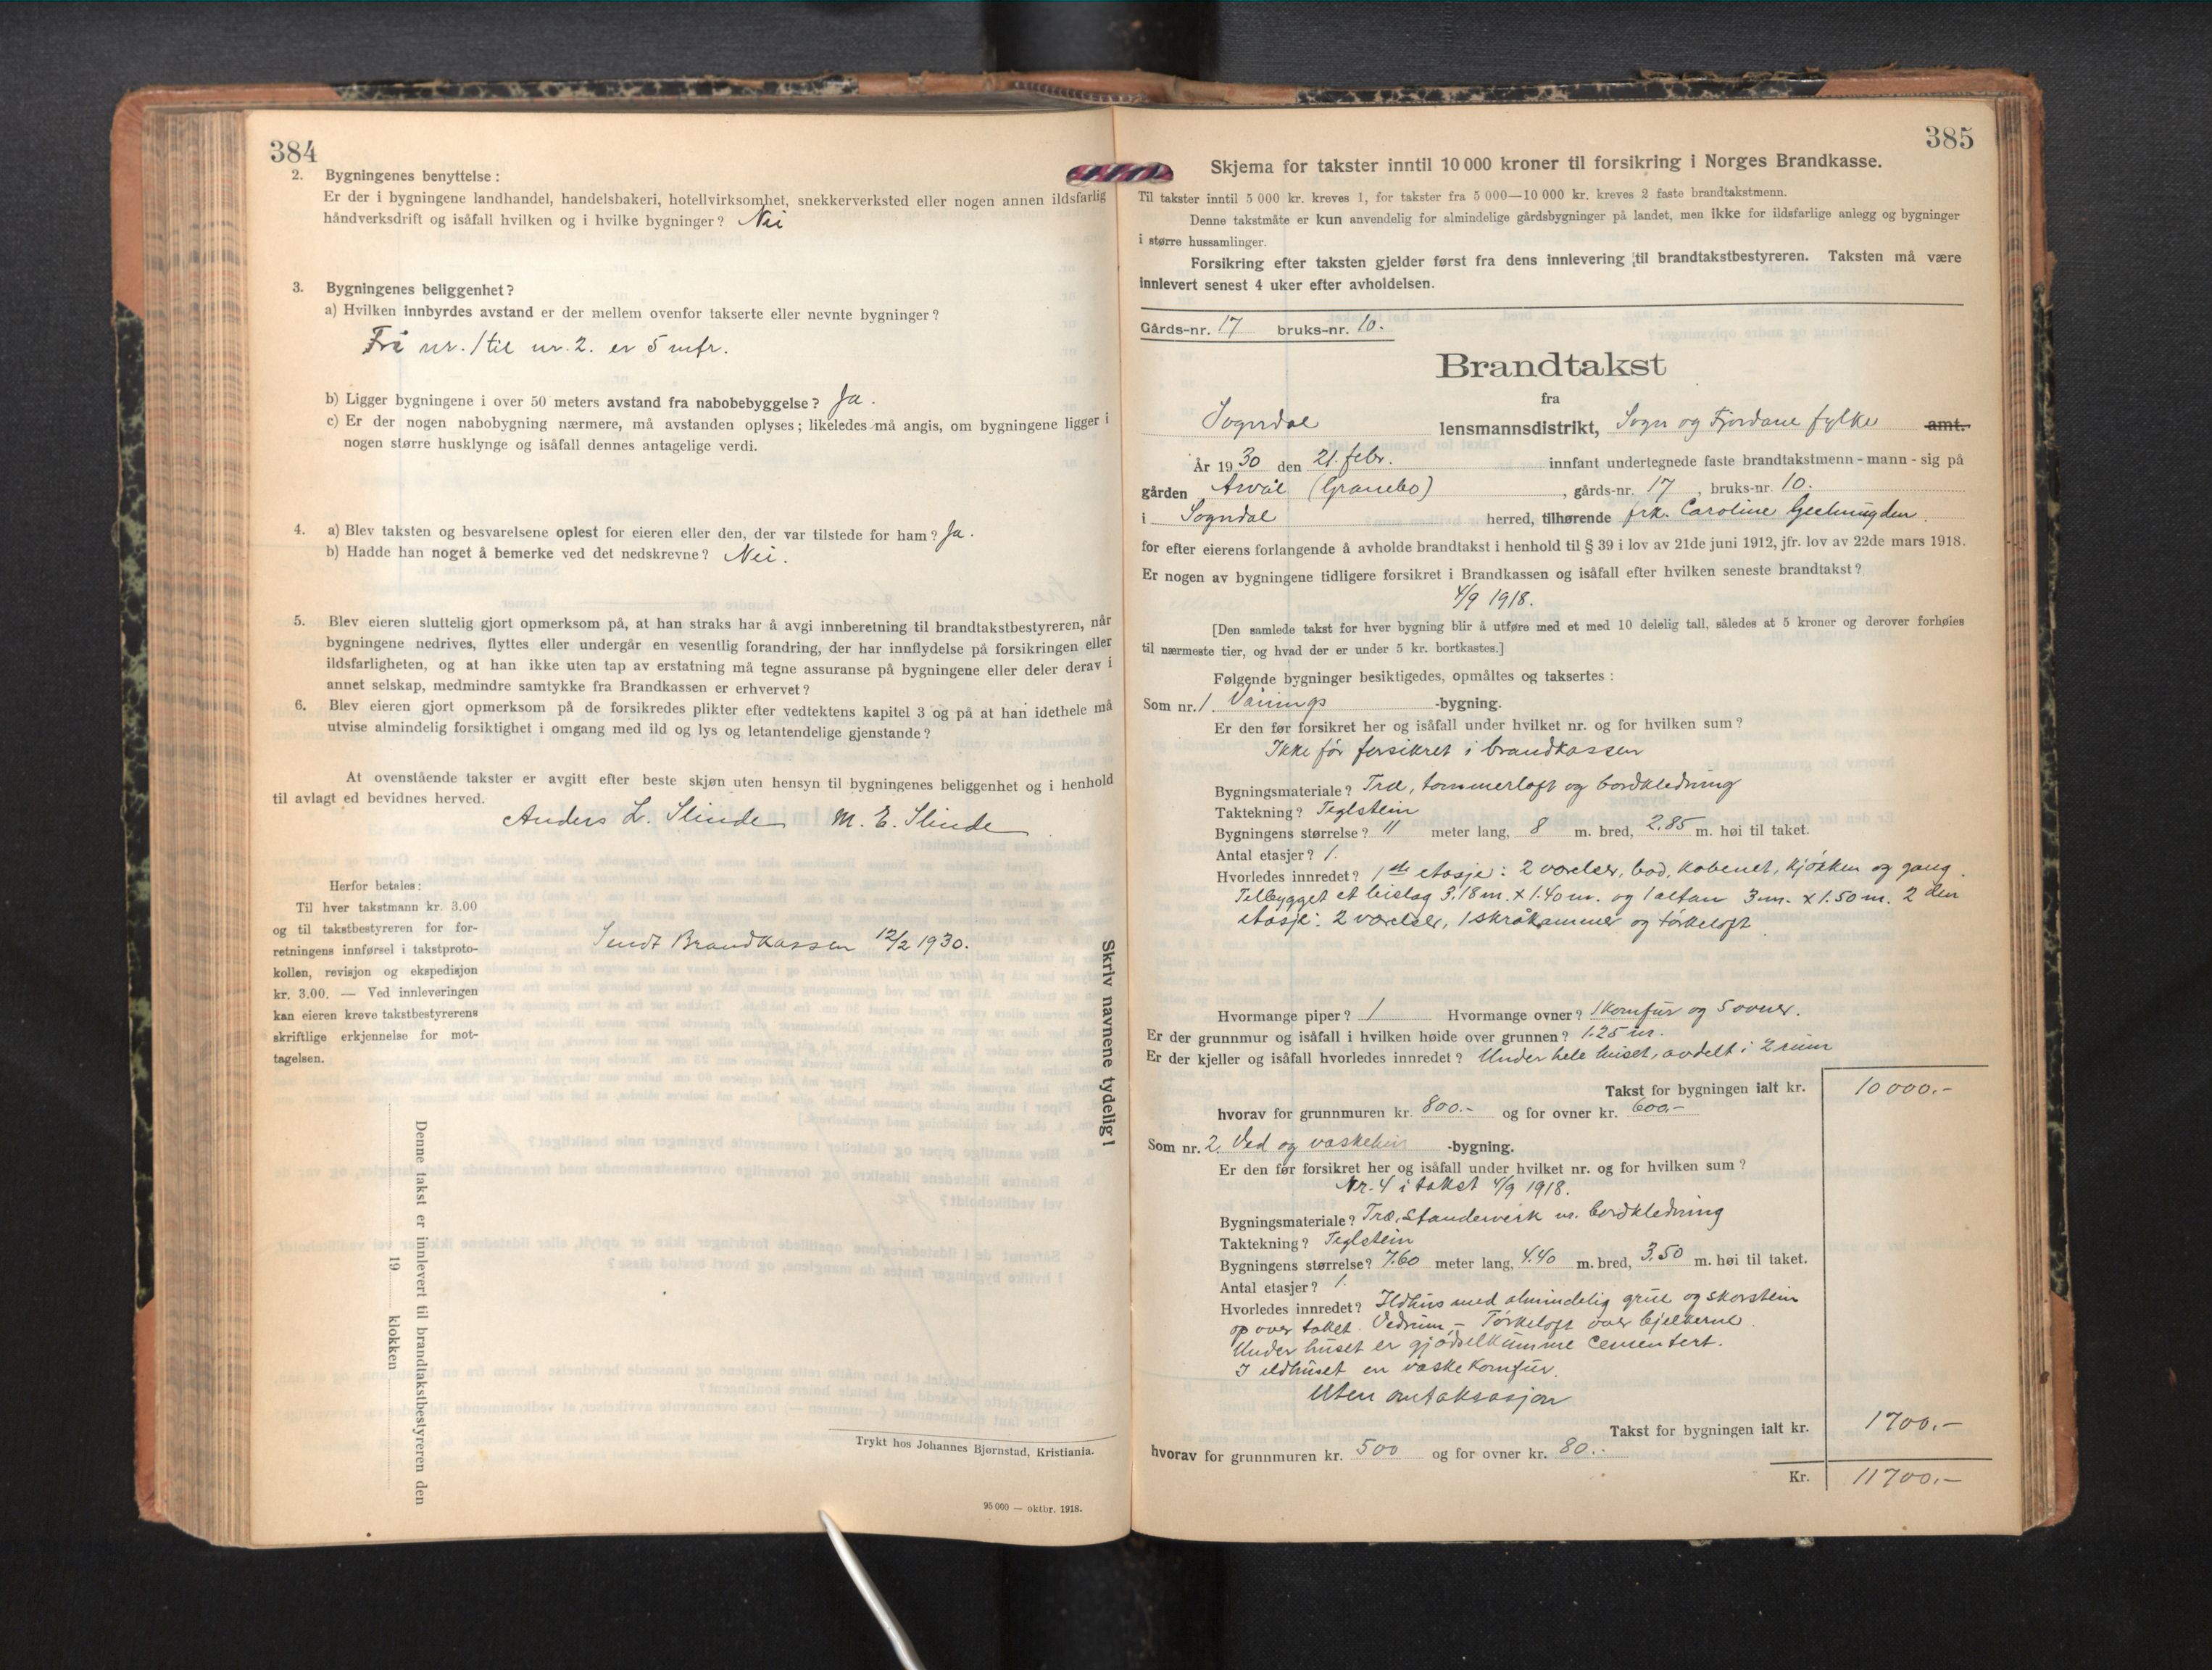 384
2. Bygningenes benyttelse:
Er der i bygningene landhandel, handelsbakeri, hotellvirksomhet, snekkerverksted eller nogen annen ildsfarlig
håndverksdrift og isåfall hvilken og i hvilke bygninger? Nei
3. Bygningenes beliggenhet?
a) Hvilken innbyrdes avstand er der mellem ovenfor takserte eller nevnte bygninger?
Frå nr. 1 til nr. 2. er 5 mtr.
b) Ligger bygningene i over 50 meters avstand fra nabobebyggelse? Ja.
c) Er der nogen nabobygning nærmere, må avstanden oplyses; likeledes må angis, om bygningene ligger i
nogen større husklynge og isåfall dennes antagelige verdi.
4. a) Blev taksten og besvarelsene oplest for eieren eller den, der var tilstede for ham? Ja.
b) Hadde han noget å bemerke ved det nedskrevne? Nei.
5. Blev eieren sluttelig gjort opmerksom på, at han straks har å avgi innberetning til brandtakstbestyreren, når
bygningene nedrives, flyttes eller undergår en vesentlig forandring, der har innflydelse på forsikringen eller
ildsfarligheten, og at han ikke uten tap av erstatning må tegne assuranse på bygningene eller deler derav i
annet selskap, medmindre samtykke fra Brandkassen er erhvervet?
6. Blev eieren gjort opmerksom på de forsikredes plikter efter vedtektens kapitel 3 og på at han idethele må
utvise almindelig forsiktighet i omgang med ild og lys og letantendelige gjenstande?
At ovenstående takster er avgitt efter beste skjøn uten hensyn til bygningenes beliggenhet og i henhold
til avlagt ed bevidnes herved.
Anders L. Slinde M. E. Slinde
Herfor betales:
Til hver takstmann kr. 3.00
og til takstbestyreren for for-
retningens innførsel i takstproto-
kollen, revisjon og ekspedisjon
kr. 3.00. — Ved innleveringen
kan eieren kreve takstbestyrerens
skriftlige erkjennelse for mot-
tagelsen.
Sendt Brandkassen 12/2 1930.
Skriv navnene tydelig!
Denne takst er innlevert til brandtakstbestyreren den
19 klokken
Trykt hos Johannes Bjørnstad, Kristiania.
95 000 — oktbr. 1918.
385
Skjema for takster inntil 10 000 kroner til forsikring i Norges Brandkasse.
Til takster inntil 5 000 kr. kreves 1, for takster fra 5 000—10 000 kr. kreves 2 faste brandtakstmenn.
Denne takstmåte er kun anvendelig for almindelige gårdsbygninger på landet, men ikke for ildsfarlige anlegg og bygninger
i større hussamlinger.
Forsikring efter taksten gjelder først fra dens innlevering til brandtakstbestyreren. Taksten må være
innlevert senest 4 uker efter avholdelsen.
Gårds-nr. 17 bruks-nr. 10.
Brandtakst
fra
Sogndal lensmannsdistrikt, Sogn og Fjordane fylke amt.
År 1930 den 21. febr. innfant undertegnede faste brandtakstmenn - mann - sig på
gården (Granebo), gårds-nr. 17, bruks-nr. 10.
i Sogndal herred, tilhørende frk. Caroline
for efter eierens forlangende å avholde brandtakst i henhold til § 39 i lov av 21de juni 1912, jfr. lov av 22de mars 1918.
Er nogen av bygningene tidligere forsikret i Brandkassen og isåfall efter hvilken seneste brandtakst?
4/9 1918.
[Den samlede takst for hver bygning blir å utføre med et med 10 delelig tall, således at 5 kroner og derover forhøies
til nærmeste tier, og hvad der er under 5 kr. bortkastes.]
Følgende bygninger besiktigedes, opmåltes og taksertes:
Som nr. 1. Vånings -bygning.
Er den før forsikret her og isåfall under hvilket nr. og for hvilken sum?
Ikke før forsikret i brandkassen
Bygningsmateriale? Træ, tømmerloft og bordkledning
Taktekning? Teglstein
Bygningens størrelse? 11 meter lang, 8 m. bred, 2.85 m. høi til taket.
Antal etasjer? 1.
Hvorledes innredet? 1ste etasje: 2 værelser, bad, kabenet, kjøkken og gang.
Tilbygget et bislag 3.18 m. x 1.40 m. og 1 altan 3 m. x 1.50 m. 2 den
etasje: 2 værelser, 1 skråkammer og tørkeloft
Hvormange piper? 1 Hvormange ovner? 1 komfur og 5 ovner.
Er der grunnmur og isåfall i hvilken høide over grunnen? 1.25 m.
Er der kjeller og isåfall hvorledes innredet? Under hele huset, avdelt i 2 rum
Takst for bygningen ialt kr. 10000.-
hvorav for grunnmuren kr. 800.- og for ovner kr. 600.-
Som nr. 2. Ved og vaskehus -bygning.
Er den før forsikret her og isåfall under hvilket nr. og for hvilken sum?
Nr. 4 i takst 4/9 1918.
Bygningsmateriale? Træ, standerverk m. bordkledning
Taktekning? Teglstein
Bygningens størrelse? 7.60 meter lang, 4.40 m. bred, 3.50 m. høi til taket.
Antal etasjer? 1.
Hvorledes innredet? Ildhus med almindelig grue og skorstein
op over taket. Vedrum. - Tørkeloft over bjelkerne.
Under huset er gjødselkumme cementert.
I ildhuset en vaskekomfur.
Uten omtaksasjon
Takst for bygningen ialt kr. 1700.-
hvorav for grunnmuren kr. 500 og for ovner kr. 80.-
Kr. 11700.-